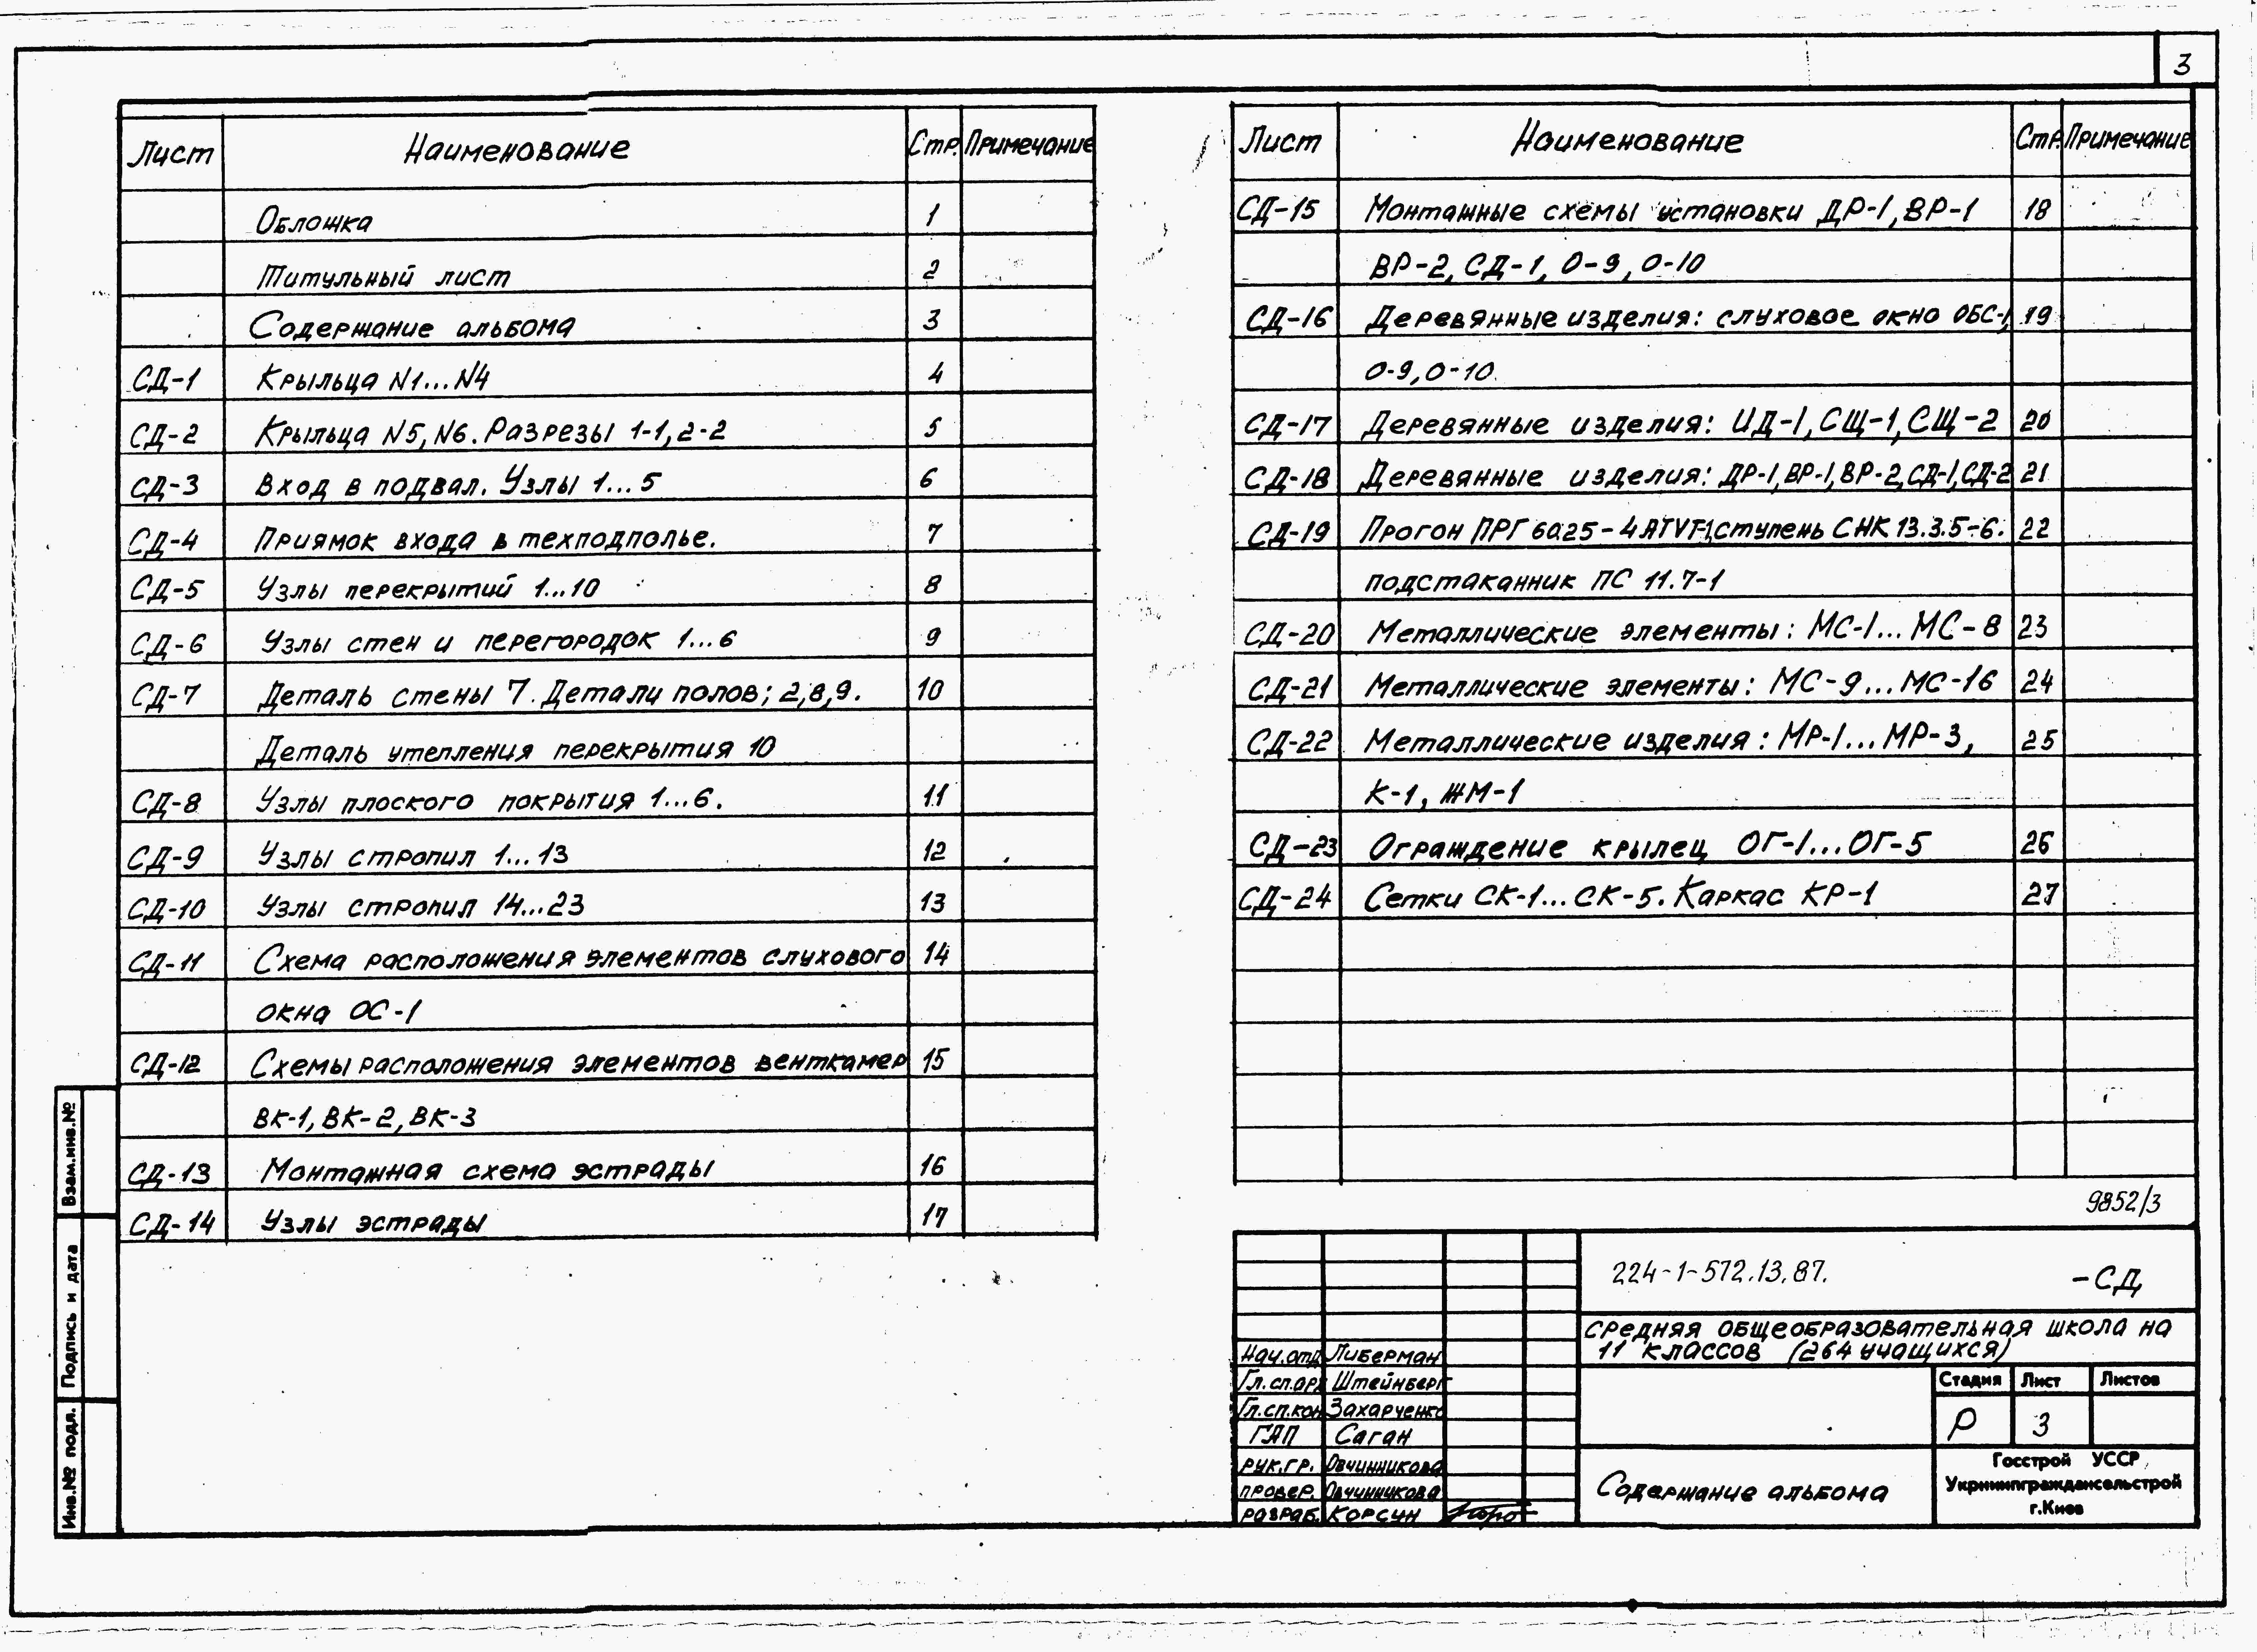 3
Лист Наименование Стр. Примечание
Обложка 1
Титульный лист 2
Содержание альбома 3
СД-1 Крыльца N1...N4 4
СД-2 Крыльца N5, N6. Разрезы 1-1, 2-2 5
СД-3 Вход в подвал. Узлы 1...5 6
СД-4 Приямок входа в техподполье. 7
СД-5 Узлы перекрытий 1...10 8
СД-6 Узлы стен и перегородок 1...6 9
СД-7 Деталь стены 7. Детали полов; 2,8,9. 10
Деталь утепления перекрытия 10
СД-8 Узлы плоского покрытия 1...6. 11
СД-9 Узлы стропил 1...13 12
СД-10 Узлы стропил 14...23 13
СД-11 Схема расположения элементов слухового 14
окна ОС-1
СД-12 Схемы расположения элементов венткамер 15
ВК-1, ВК-2, ВК-3
СД-13 Монтажная схема эстрады 16
СД-14 Узлы эстрады 17
Лист Наименование Стр. Примечание
СД-15 Монтажные схемы установки ДР-1, ВР-1 18
ВР-2, СД-1, О-9, О-10
СД-16 Деревянные изделия: слуховое окно ОБС-1, 19
О-9, О-10.
СД-17 Деревянные изделия: ИД-1, СЩ-1, СЩ-2 20
СД-18 Деревянные изделия: ДР-1, ВР-1, ВР-2, СД-1, СД-2 21
СД-19 Прогон ПРГ 60.25-4АТVТ-1, ступень СНК 13.3.5-6. 22
подстаканник ПС 11.7-1
СД-20 Металлические элементы: МС-1...МС-8 23
СД-21 Металлические элементы: МС-9...МС-16 24
СД-22 Металлические изделия: МР-1...МР-3, 25
К-1, ЖМ-1
СД-23 Ограждение крылец ОГ-1...ОГ-5 26
СД-24 Сетки СК-1...СК-5. Каркас КР-1 27
9852/3
224-1-572.13.87. -СД
средняя общеобразовательная школа на
11 классов (264 учащихся)
Нач.отд Либерман
Гл.сп.арх Штейнберг
Гл.сп.кон Захарченко
ГАП Саган
рук.гр. Овчинникова
провер. Овчинникова
разраб. Корсун
Стадия Лист Листов
Р 3
Содержание альбома
Госстрой УССР
Укрниипграждансельстрой
г.Киев
Взам.инв.№
Подпись и дата
Инв.№ подл.